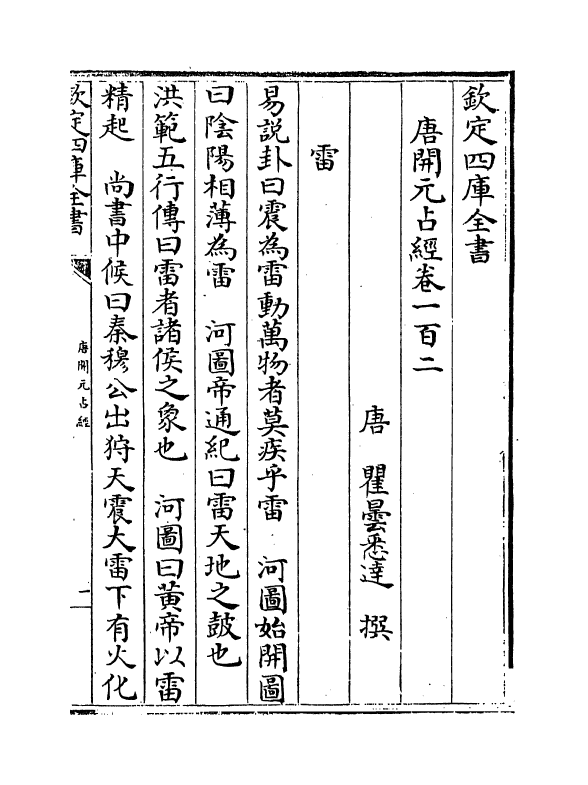 欽定四庫全書
唐開元占經卷一百二
唐 瞿曇悉達 撰
雷
易說卦曰震為雷動萬物者莫疾乎雷 河圖始開圖
曰陰陽相薄為雷 河圖帝通紀曰雷天地之鼓也
洪範五行傳曰雷者諸侯之象也 河圖曰黄帝以雷
精起 尚書中候曰秦穆公出狩天震大雷下有火化
欽定四庫全書
唐開元占經
一